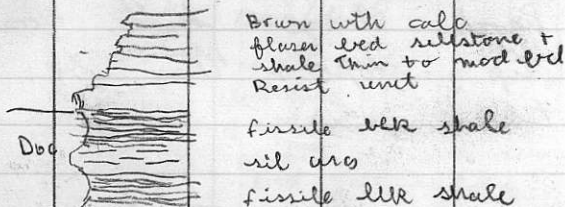 Brwn wth calc
flaser bed siltstone +
shale thin to mod bed
Resist unit
fissile blk shale
Doo
sil
fissile blk shale